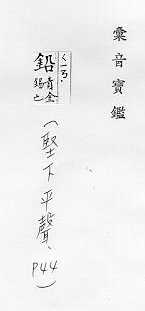 彙音寶鑑
ㄑㄧㄢˊ
鉛 青金錫之
（堅下平聲、P44）